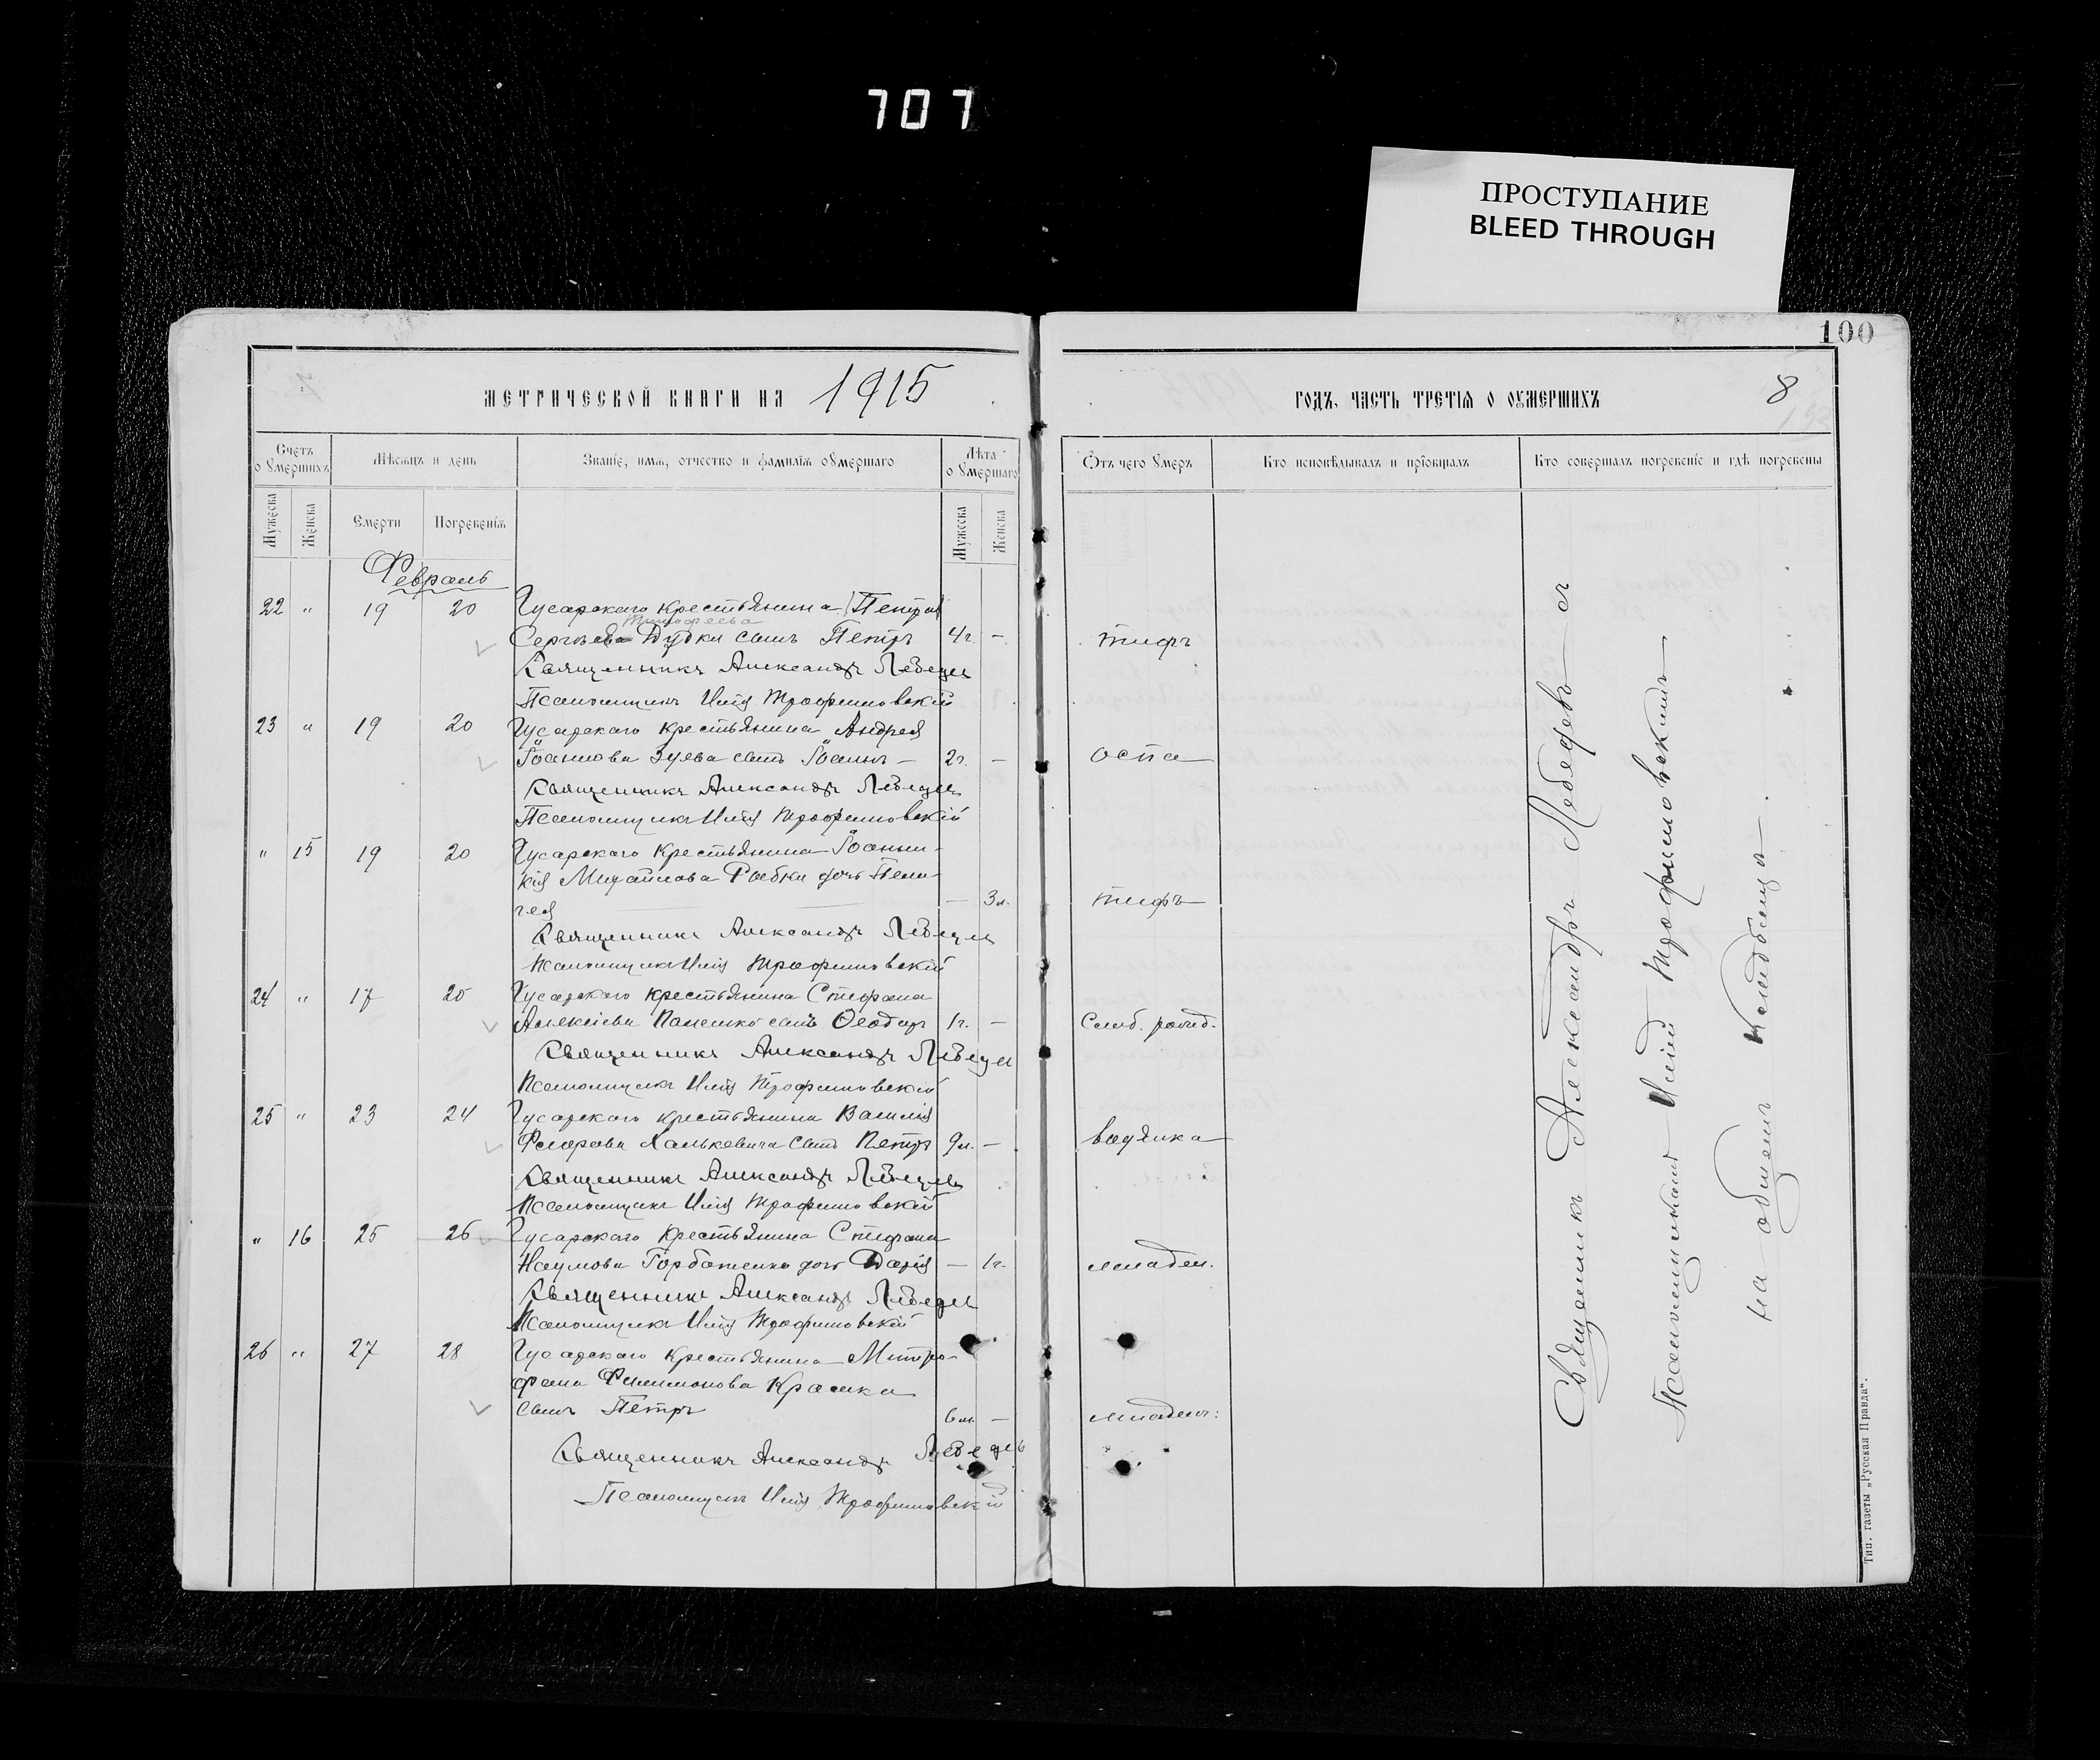 707
ПРОСТУПАНИЕ
BLEED THROUGH
100
МЕТРИЧЕСКОЙ КНИГИ НА 1915
ГОДЪ, ЧАСТЬ ТРЕТІЯ О ОУМЕРШИХЪ
8
Счетъ оумершихъ
Мѣсяцъ и день
Званіе, имя, отчество и фамилія оумершаго
Лѣта оумершаго
Отъ чего умеръ
Кто исповѣдывалъ и пріобщалъ
Кто совершалъ погребеніе и гдѣ погребены
Мужеска
Женска
Смерти
Погребенія
Мужеска
Женска
Февраль
22 " 19 20 Гусарскаго крестьянина Петра
Тимофеева
Сергѣева Дудки сынъ Петръ 4 г. — тифъ
Священникъ Александръ Лебедевъ
Псаломщикъ Илія Трофимовскій
23 " 19 20 Гусарскаго крестьянина Андрея
Іоаннова Зуева сынъ Іоаннъ — 2 г. — оспа
Священникъ Александръ Лебедевъ
Псаломщикъ Илія Трофимовскій
" 15 19 20 Гусарскаго крестьянина Іоанни-
кія Михайлова Рыбки дочь Пела-
гея — 3 м. тифъ
Священникъ Александръ Лебедевъ
Псаломщикъ Илія Трофимовскій
24 " 17 20 Гусарскаго крестьянина Стефана
Алексіева сынъ Ѳеодоръ 1 г. — слаб. рожд.
Священникъ Александръ Лебедевъ
Псаломщикъ Илія Трофимовскій
25 " 23 24 Гусарскаго крестьянина Василія
Флорова Халькевича сынъ Петръ 9 м. — водянка
Священникъ Александръ Лебедевъ
Псаломщикъ Илія Трофимовскій
" 16 25 26 Гусарскаго крестьянина Стефана
Наумова Горбатенко дочь Дарія — 1 г. младен.
Священникъ Александръ Лебедевъ
Псаломщикъ Илія Трофимовскій
26 " 27 28 Гусарскаго крестьянина Митро-
фана Филимонова
сынъ Петръ 6 м. — младен:
Священникъ Александръ Лебедевъ
Псаломщикъ Илія Трофимовскій
Священникъ Александръ Лебедевъ съ
Псаломщикомъ Иліей Трофимовскимъ
на общемъ кладбищѣ
Тип. газеты „Русская Правда".